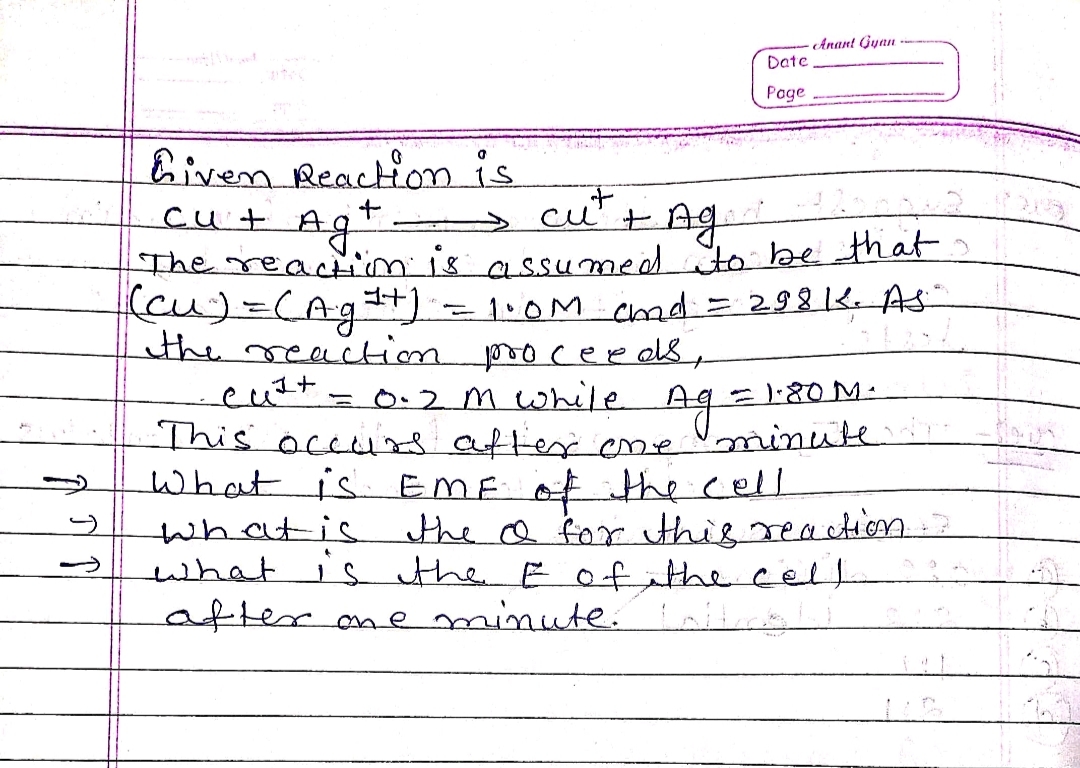 Anant Gyan
Date
Page
Given Reaction is
Cu + Ag⁺ → Cu⁺ + Ag
The reaction is assumed to be that
(Cu) = (Ag¹⁺) = 1.0M and = 298 K. As
the reaction proceeds,
Cu¹⁺ = 0.2 M while Ag = 1.80 M.
This occurs after one minute
→ What is EMF of the cell
→ what is the Q for this reaction
→ what is the E of the cell
after one minute.